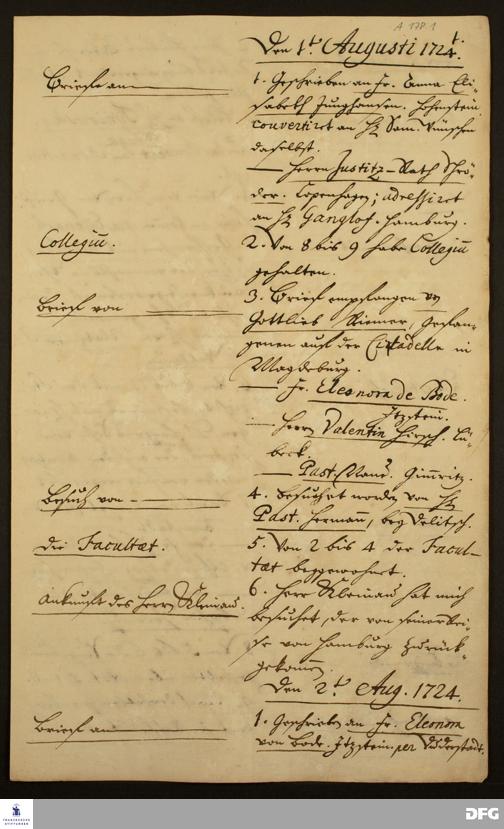 A 178:1
Den 1.t Augusti 1724.
Briefe an
1. Geschrieben an Fr. Anna Eli-
sabeth Junghansen. Hohnstein
couvertiret an H. Sam.
daselbst.
Herrn Justitz-Rath Schrö-
der. Copenhagen; adressiret
an H. Ganglof. Hamburg.
Collegiū.
2. Von 8 bis 9 habe Collegiū
gehalten.
Briefe von
3. Briefe empfangen von
Gottlieb Riemer, Gefan-
genen auf der Citadelle in
Magdeburg.
Fr. Eleonora de Bode.
Itzstein.
Herrn Valentin Hirsch. Lü-
beck.
Past. Gimritz.
Besuch von
4. Besuchet worden von H.
Past. Hermann, bey Delitsch.
Die Facultæt.
5. Von 2 bis 4 der Facul-
tæt beygewohnet.
Ankunft des Herrn Kleinau.
6. Herr Kleinau hat mich
besuchet, der von seiner Rei-
se von Hamburg zurück-
gekommen.
Den 2.t Aug. 1724.
Briefe an
1. Geschrieben an Fr. Eleonora
von Bode. Itzstein. per Duderstadt.
FRANCKESCHE
STIFTUNGEN
DFG